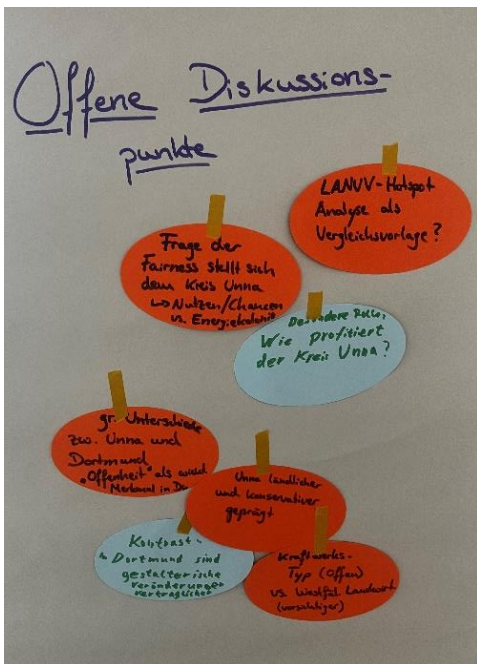 Offene Diskussions-
punkte
LANUV-Hotspot
Analyse als
Vergleichsvorlage?
Frage der
Fairness stellt sich
dem Kreis Unna
↳ Nutzen/Chancen
vs. Energiekolonie
Besondere Rolle,
Wie profitiert
der Kreis Unna?
gr. Unterschiede
zw. Unna und
Dortmund
„Offenheit" als
Merkmal in
Unna ländlicher
und konservativer
geprägt
Kontrast
Dortmund sind
gestalterische
veränderungen
verträglicher
Kraftwerks-
Typ (Offen)
vs. Westfäl. Landwirt
(vorsichtiger)